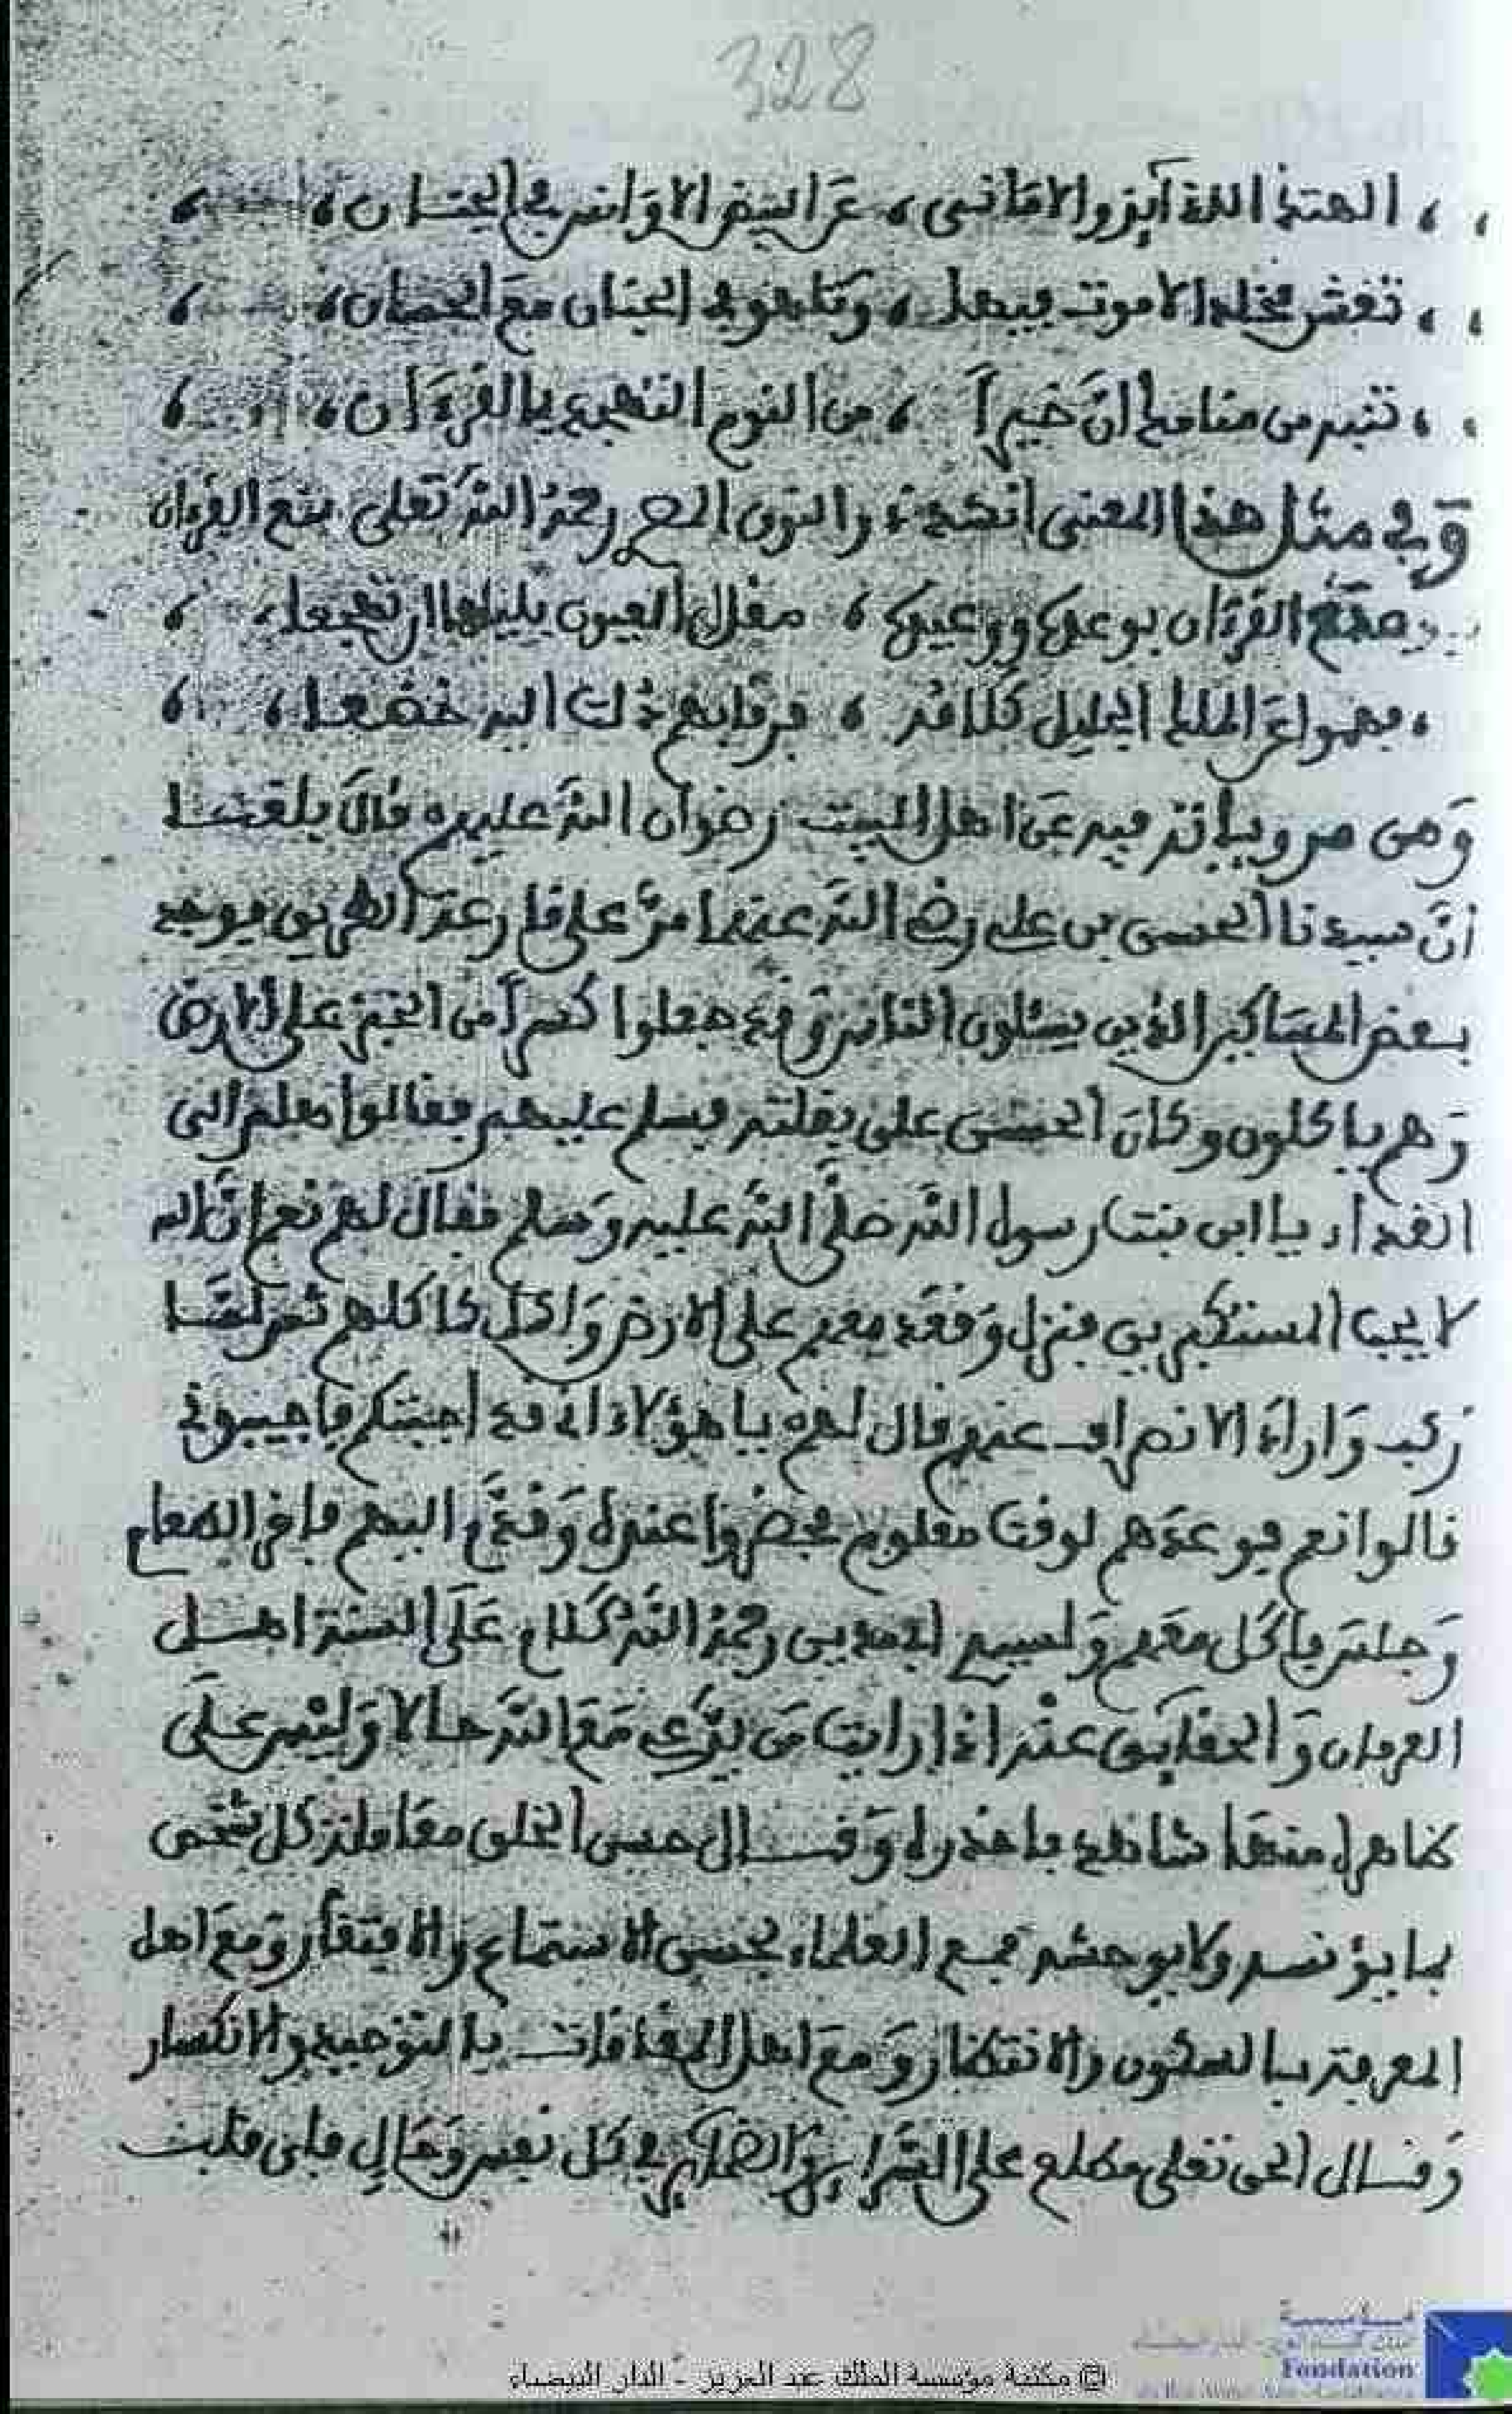 328
، ، الهتك اللذائذ والاماني ، عن البيض الاوانس في الحسان ،
، ، تعيش مخلدا لا موت فيها ، وتلهو في الجنان مع الحسان ،
، ، تنبه من منامك ان خيرا ، من النوم التهجد بالقرءان ،
وفي مثل هذا المعنى انشد ذو النون المصري رحمه الله تعلى منع القرءان
منع القرءان بوعده ووعيده ، مقل العيون بليلها ان تهجعا ،
، فهموا عن الملك الجليل كلامه ، فرقابهم ذلت اليه خضعا ،
ومن مروياته فيه عن اهل البيت رضوان الله عليهم قال بلغنا
ان سيدنا الحسن بن علي رضي الله عنهما مر على قارعة الطريق فوجد
بعض المساكين الذين يسئلون الناس وقد جعلوا كسرا من الخبز على الارض
وهم ياكلون وكان الحسن على بغلته فسلم عليهم فقالوا هلم الى
الغداء يا ابن بنت رسول الله صلى الله عليه وسلم فقال لهم نعم ان الله
لا يحب المستكبرين فنزل وقعد معهم على الارض واكل كاكلهم ثم لما
ركب واراد الانصراف عنهم قال لهم يا هؤلاء اني قد اجبتكم فاجيبوني
فالوا نعم فوعدهم لوقت معلوم فحضروا عنده وقدم اليهم فاخر الطعام
وجلس ياكل معهم ولسيدي رحمه الله كلام على السنة اهل
العرفان والحقائق عنه اذا رايت من يدعي مع الله حالا وليس على
ظاهره منها شاهد فاحذره وقال حسن الخلق معاملة كل شخص
بما يؤنسه ولا يوحشه فمع العلماء بحسن الاستماع والافتقار ومع اهل
المعرفة بالسكون والانتظار ومع اهل المقامات بالتوحيد والانكسار
وقال الحق تعلى مطلع على السرائر والظواهر في كل نفس وحال فاي قلب
© مكتبة مؤسسة الملك عبد العزيز - الدار البيضاء
Fondation